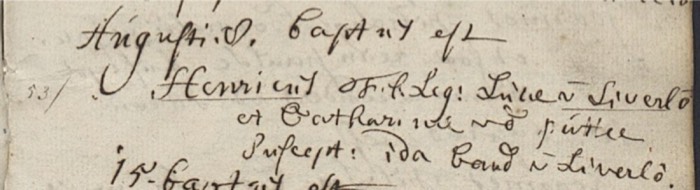 Augusti. 8. baptus est
53/ Henricus F. l. Leg: Lucæ ṽ Liverlõ
et Catharinæ võ pütte
Suscept: ida band ṽ Liverlô.
15. baptus est